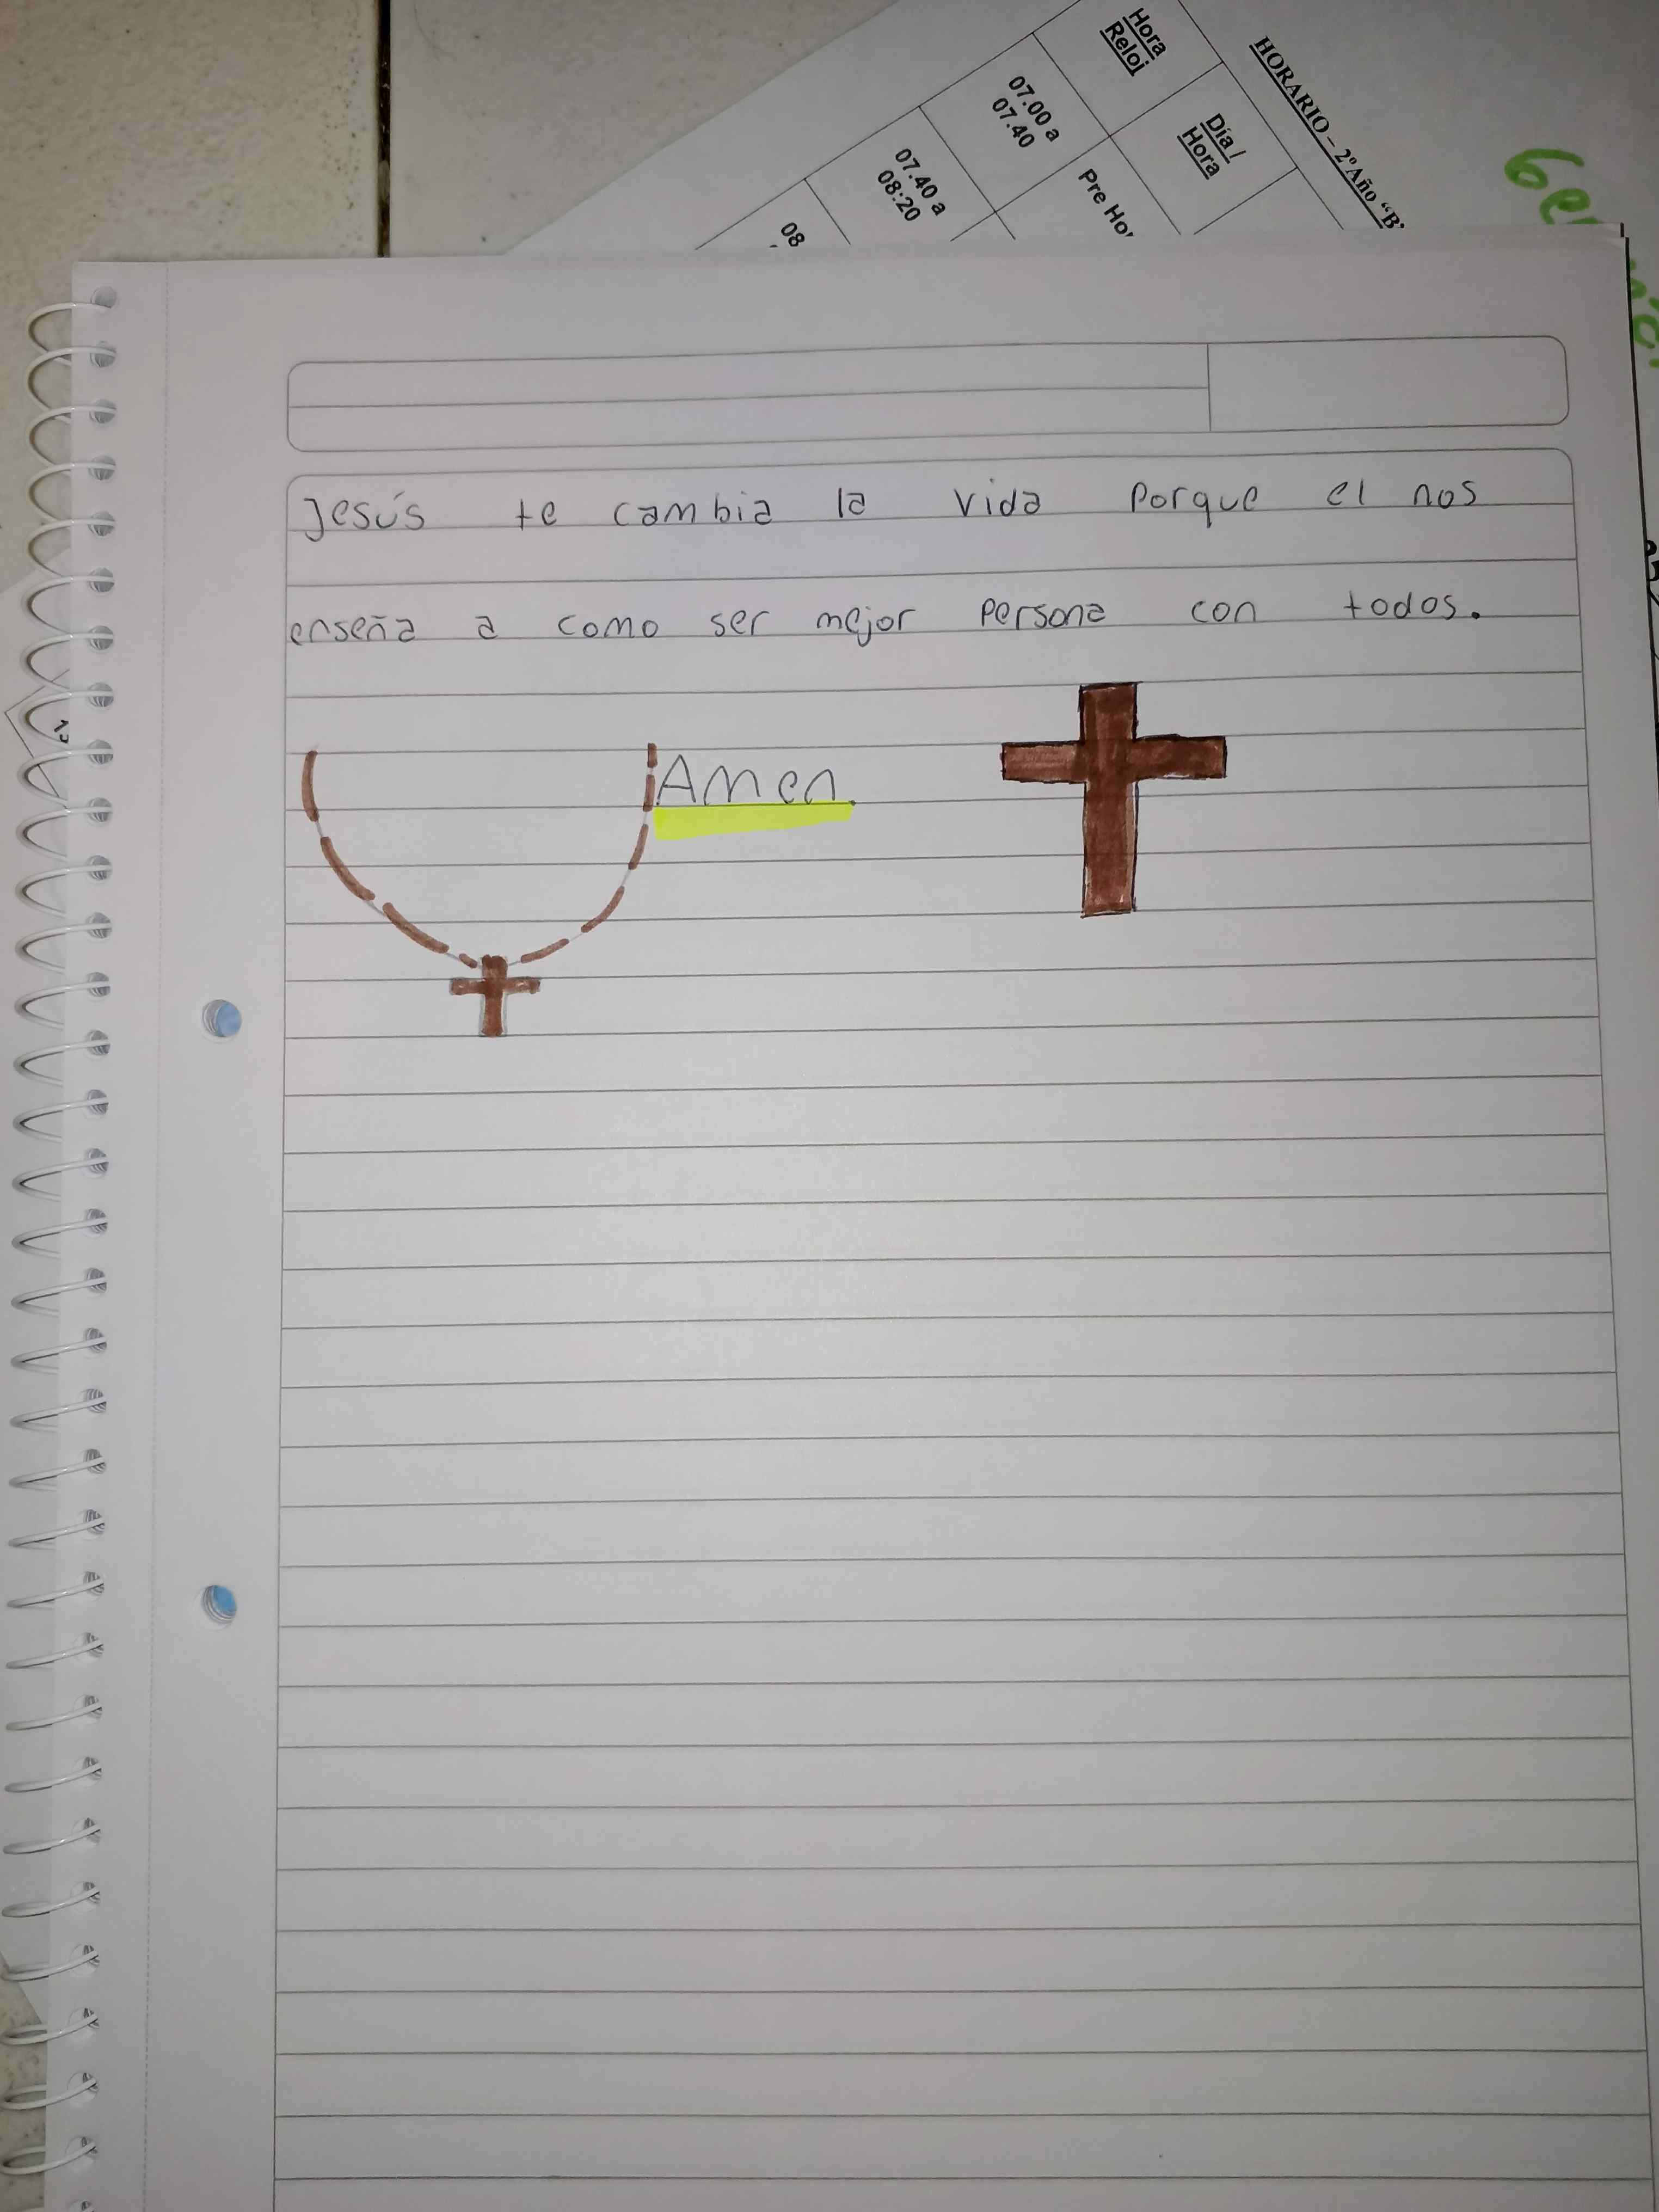 HORARIO – 2º Año “B”
Hora
Reloj
Día /
Hora
07.00 a
07.40
Pre Hor
07.40 a
08:20
08
Jesús te cambia la vida porque el nos
enseña a como ser mejor persona con todos.
Amen.